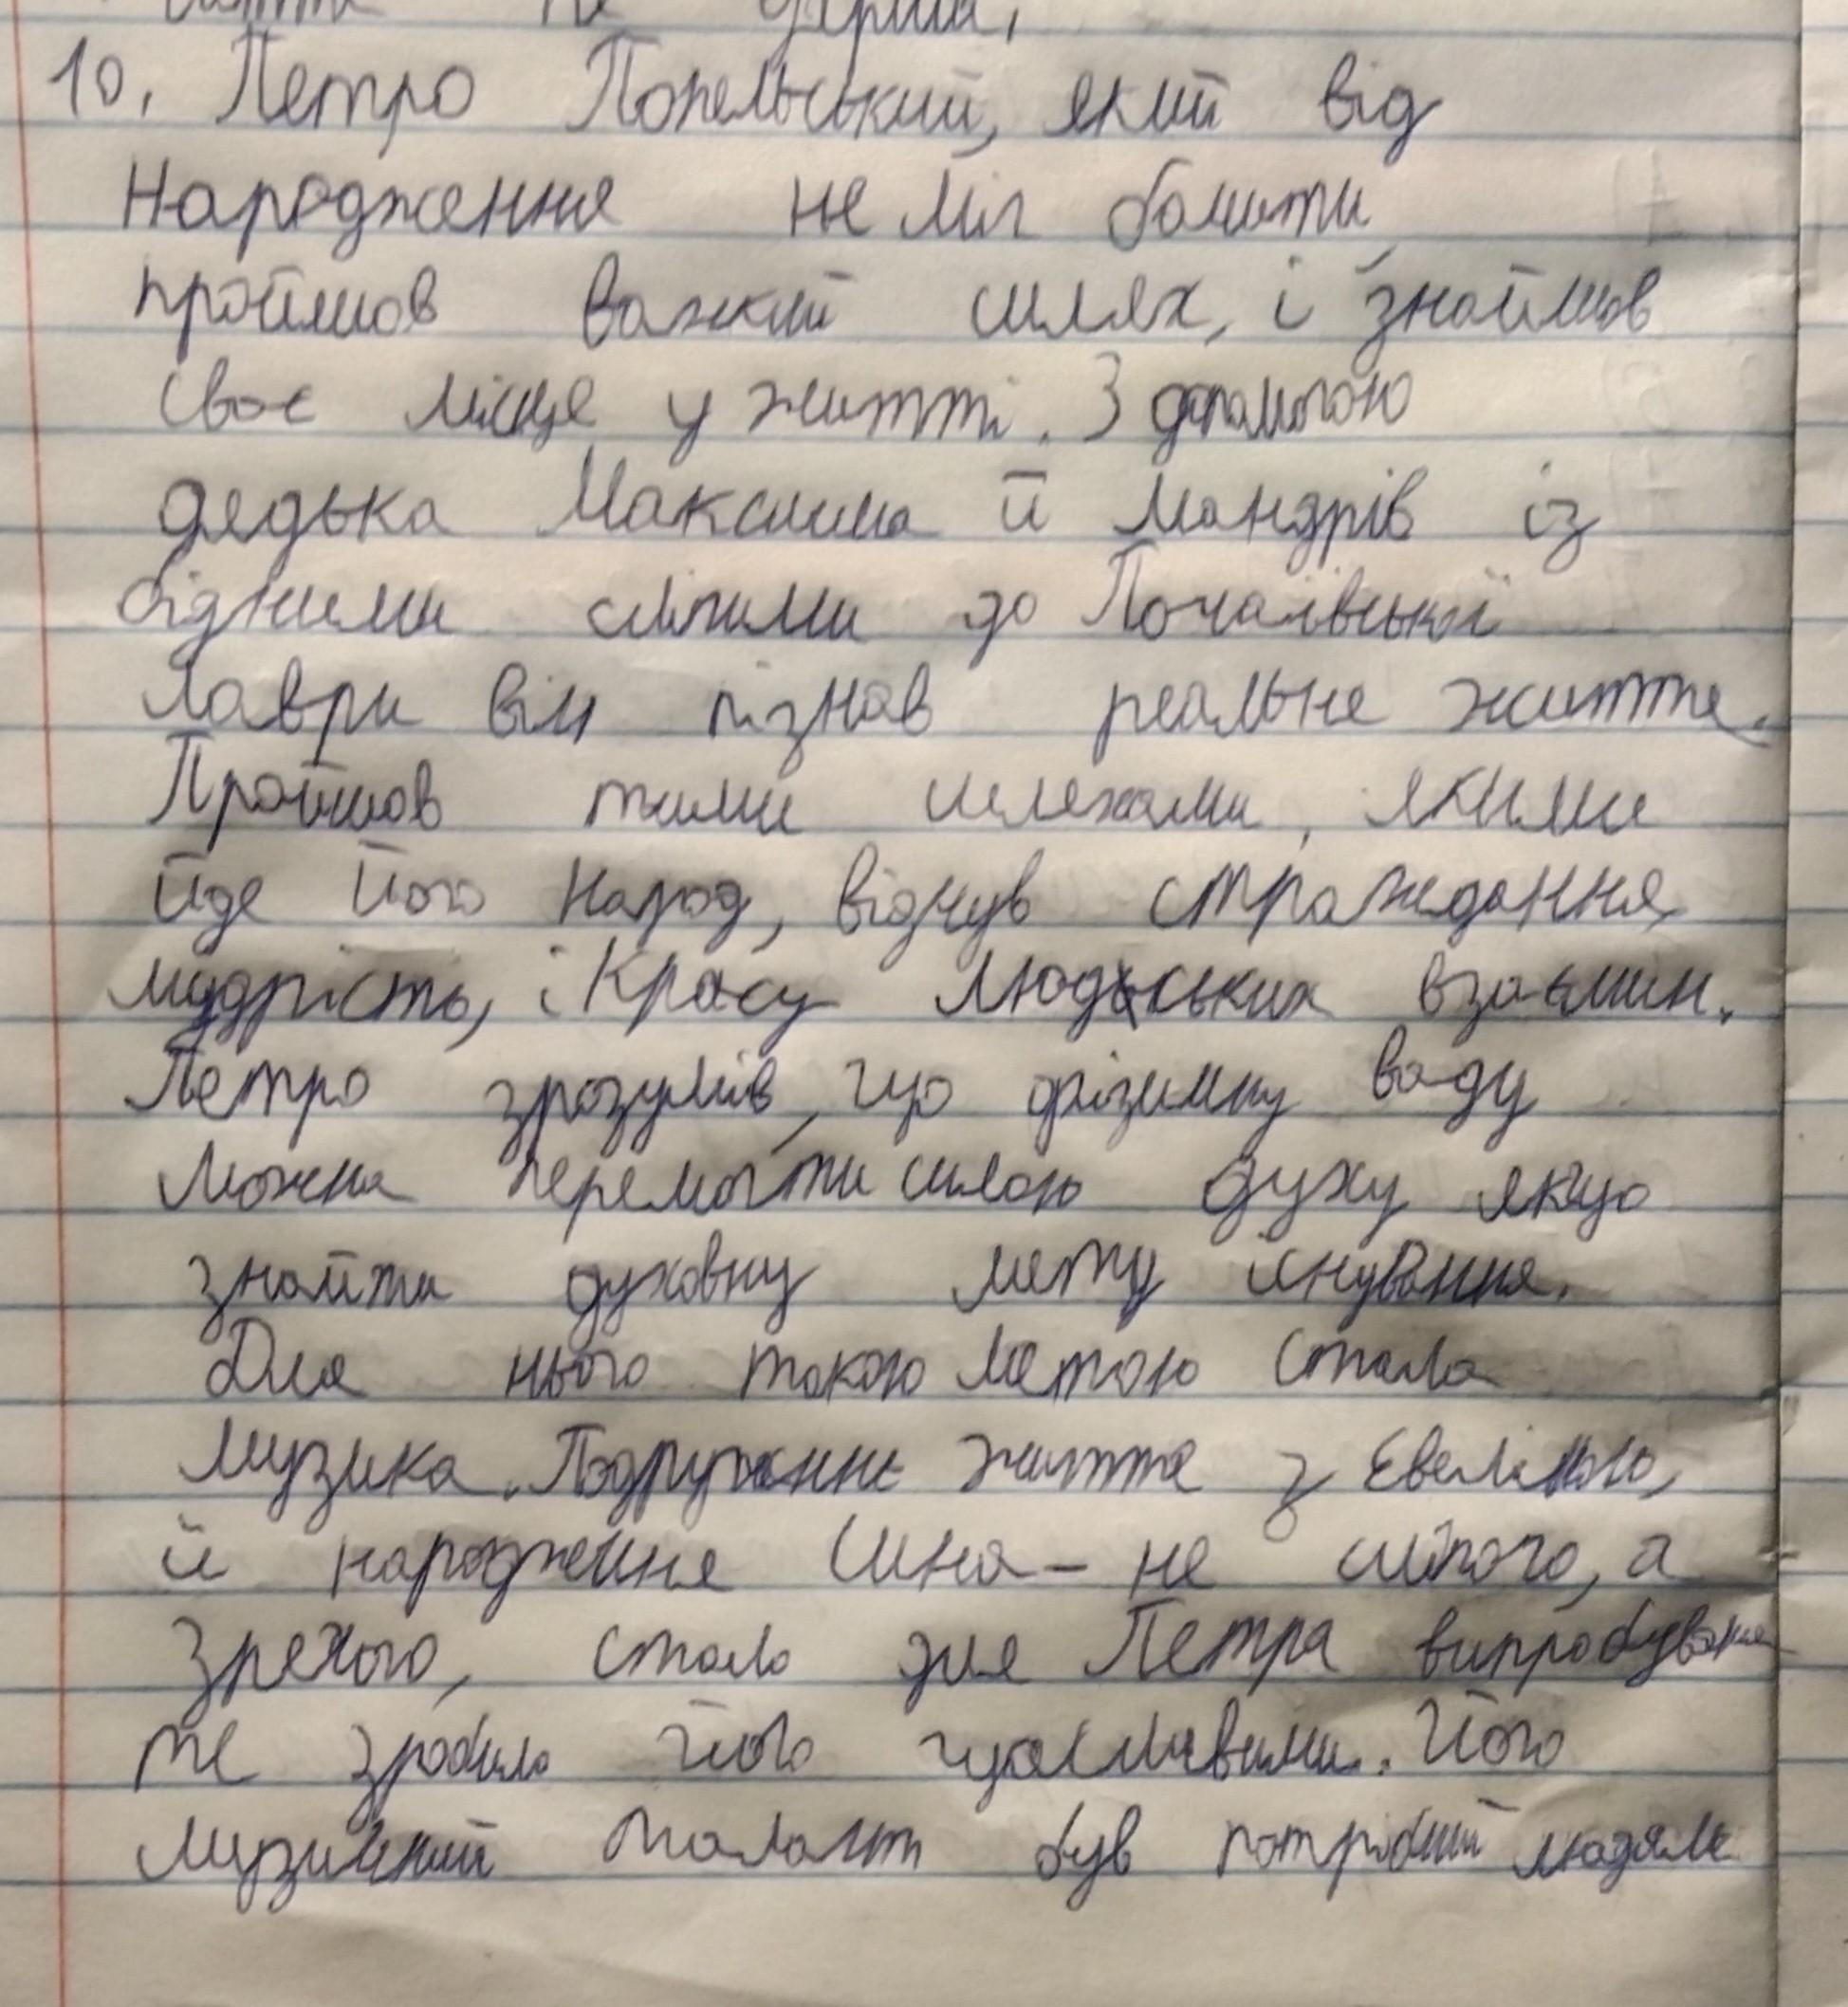 10. Петро Попельський, який від
народження не міг бачити,
пройшов важкий шлях, і знайшов
своє місце у житті. З допомогою
дядька Максима й мандрів із
бідними сліпими до Почаївської
лаври він пізнав реальне життя.
Пройшов тими шляхами, якими
йде його народ, відчув страждання,
мудрість, і красу людських взаємин.
Петро зрозумів, що фізичну ваду
можна перемогти силою духу якщо
знайти духовну мету існування.
Для нього такою метою стала
музика. Подружнє життя з Евеліною,
й народження сина - не сліпого, а
зрячого, стало для Петра випробування
те зробило його щасливими. Його
музичний талант був потрібний людям